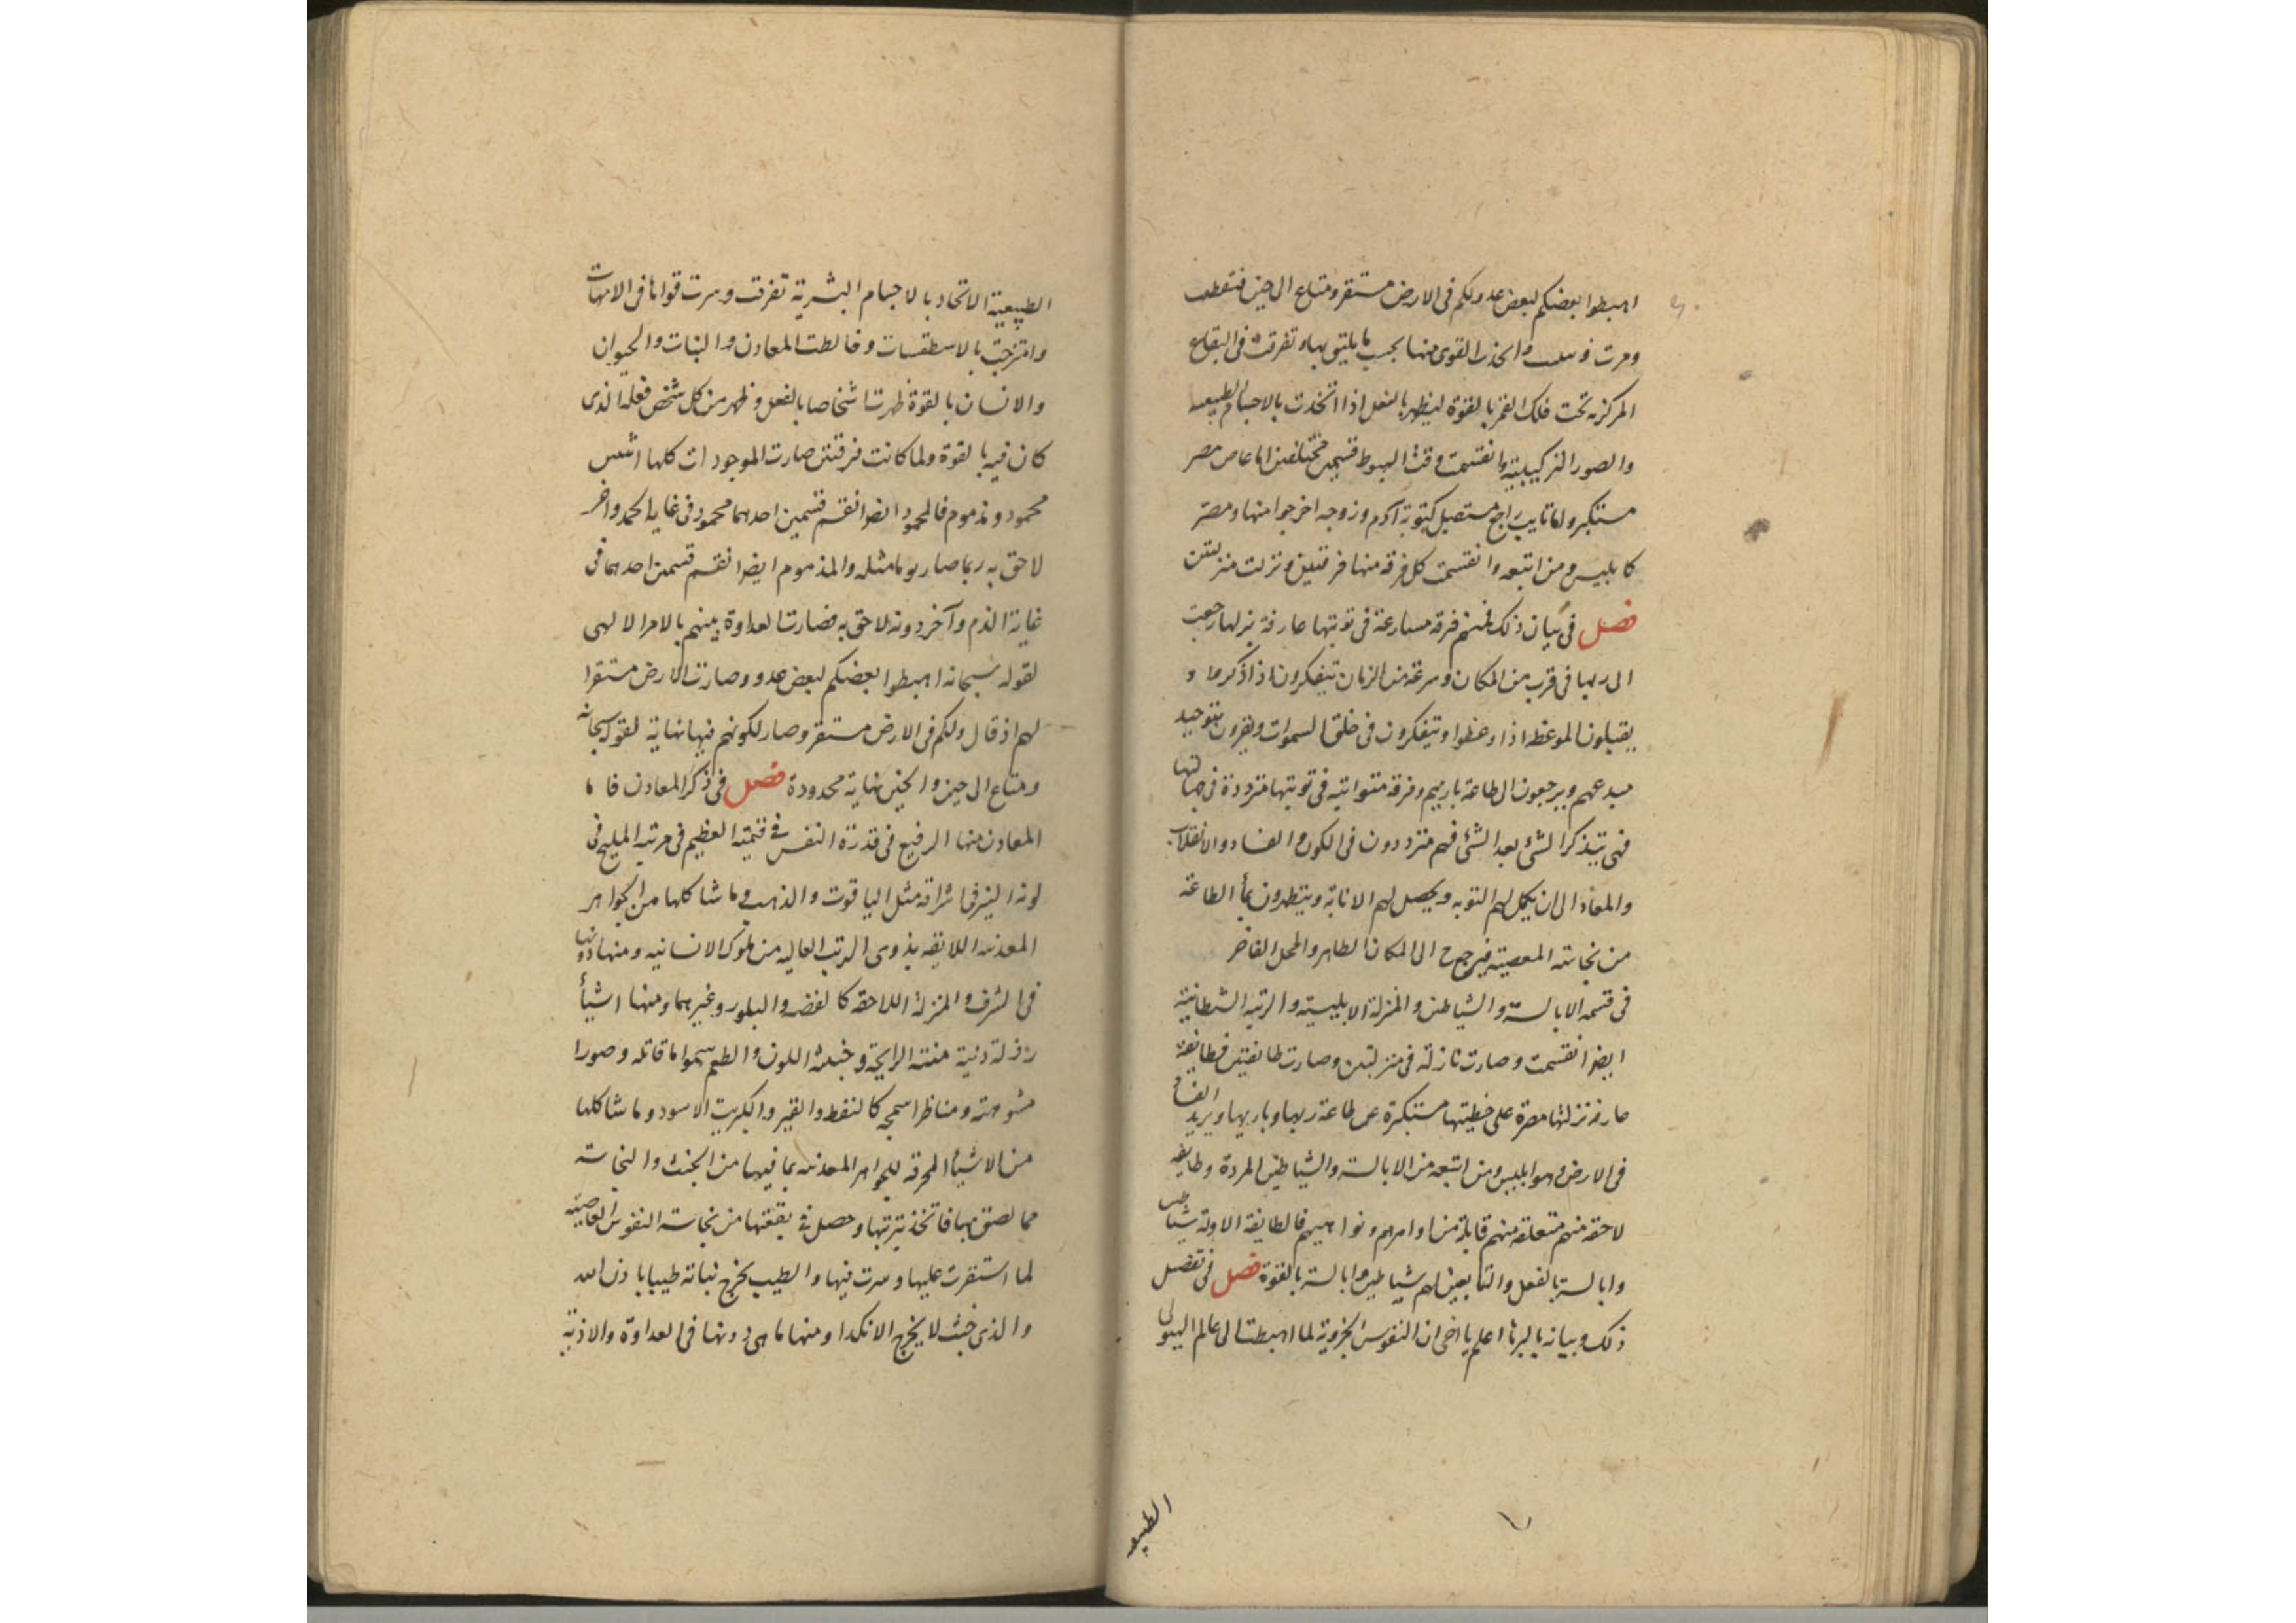 اهبطوا بعضكم لبعض عدو ولكم فى الارض مستقر ومتاع الى حين فتقطعت
ومرت وانحدرت القوى منها بحسب ما يليق بها وتفرقت فى البقاع
المركزية تحت فلك القمر بالقوة ليظهر بالفعل اذا اتحدت بالاجسام الطبيعية
والصور التركيبية وانقسمت وقت الهبوط قسمين مختلفين اما عاص مصر
مستكبر واما تايب راجع مستقيل كتوبة آدم وزوجه اخرجوا منها ومصر
كابليس ومن اتبعه وانقسمت كل فرقة منها فرقتين ونزلت منزلتين
فصل فى بيان ذلك فمنهم فرقة مسارعة فى توبتها عارفة بزلتها رجعت
الى ربها فى قرب من المكان وسرعة من الزمان يتفكرون اذا ذكروا و
يقبلون الموعظة اذا وعظوا ويتفكرون فى خلق السموات ويقرون بتوحيد
مبدعهم ويرجعون الى طاعة باريهم وفرقة متوانية فى توبتها مترددة فى جهالتها
فهى تتذكر الشئ بعد الشئ فهم مترددون فى الكون والفساد والانقلاب
والمعاد الى ان يكمل لهم التوبه ويحصل لهم الانابة ويتطهرون بماء الطاعة
من نجاسة المعصية فيرجع ح الى المكان الطاهر والمحل الفاخر
فى قسمة الابالسة والشياطين والمنزلة الابليسية والرتبة الشيطانية
ايضا انقسمت وصارت نازلة فى منزلتين وصارت طائفتين فطايفة
عارفة بزلتها مصرة على خطيتها مستكبرة عن طاعة ربها وباريها ويريد الفساد
فى الارض وهو ابليس ومن اتبعه من الابالسة والشياطين المردة وطايفة
لاحقة منهم متعلقة منهم قابلة من اوامرهم ونواهيهم فالطايفة الاولة شياطين
وابالسة بالفعل والتابعين لهم شياطين وابالسة بالقوة فصل فى تفصيل
ذلك وبيانه بالبرهان اعلم يا اخى ان النفوس الجزوية لما اهبطت الى عالم الهيولى
الطبيعية
الطبيعية الاتحاد بالاجسام البشرية تفرقت وسرت قواها فى الامهات
وامتزجت بالاسطقسات وخالطت المعادن والنبات والحيوان
والانسان بالقوة ظهرت اشخاصا بالفعل وظهر من كل شخص فعله الذى
كان فيه بالقوة ولما كانت فرقتين صارت الموجودات كلها اثنين
محمود ومذموم فالمحمود ايضا انقسم قسمين احدهما محمود فى غاية الحمد واخر
لاحق به ربما صار هو ما مثله والمذموم ايضا انقسم قسمين احدهما فى
غاية الذم وآخر دونه لاحق به فصارت العداوة بينهم بالامر الالهى
لقوله سبحانه اهبطوا بعضكم لبعض عدو وصارت الارض مستقرا
لهم اذ قال ولكم فى الارض مستقر وصار لكونهم فيها نهاية لقوله سبحانه
ومتاع الى حين والحين نهاية محدودة فصل فى ذكر المعادن فاما
المعادن منها الرفيع فى قدره النفيس فى قيمته العظيم فى مرتبته المليح فى
لونه النير فى اشراقه مثل الياقوت والذهب وما شاكلها من الجواهر
المعدنية اللايقه بذوى الرتب العاليه من ملوك الانسانيه ومنها دونها
فى الشرف والمنزلة اللاحقة كالفضة والبلور وغيرهما ومنها اشياء
رذلة دنية منتنة الرايحة وخبيثة اللون والطعم سموما قاتله وصورا
مشوهة ومناظرا سمجه كالنفط والقير والكبريت الاسود وما شاكلها
من الاشياء المحرقة للجواهر المعدنيه بما فيها من الخبث والنجاسة
مما لصق بها فاتخذ بتربتها وحصل فى بقعتها من نجاسة النفوس العاصية
لما استقرت عليها وسرت فيها والطيب يخرج نباته طيبا باذن الله
والذى خبث لا يخرج الا نكدا ومنها ما هى دونها فى العداوة والاذية